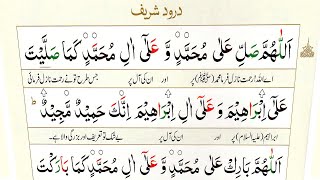 درود شریف
اَللّٰهُمَّ صَلِّ عَلٰى مُحَمَّدٍ وَّ عَلٰٓى اٰلِ مُحَمَّدٍ كَمَا صَلَّيْتَ
اے اللہ! رحمت نازل فرما محمد (ﷺ) پر اور ان کی آل پر جس طرح تو نے رحمت نازل فرمائی
عَلٰٓى اِبْرَاهِيْمَ وَ عَلٰٓى اٰلِ اِبْرَاهِيْمَ اِنَّكَ حَمِيْدٌ مَّجِيْدٌ ط
ابراہیم (علیہ السلام) پر اور ان کی آل پر بے شک تو تعریف اور بزرگی والا ہے۔
اَللّٰهُمَّ بَارِكْ عَلٰى مُحَمَّدٍ وَّ عَلٰٓى اٰلِ مُحَمَّدٍ كَمَا بَارَكْتَ